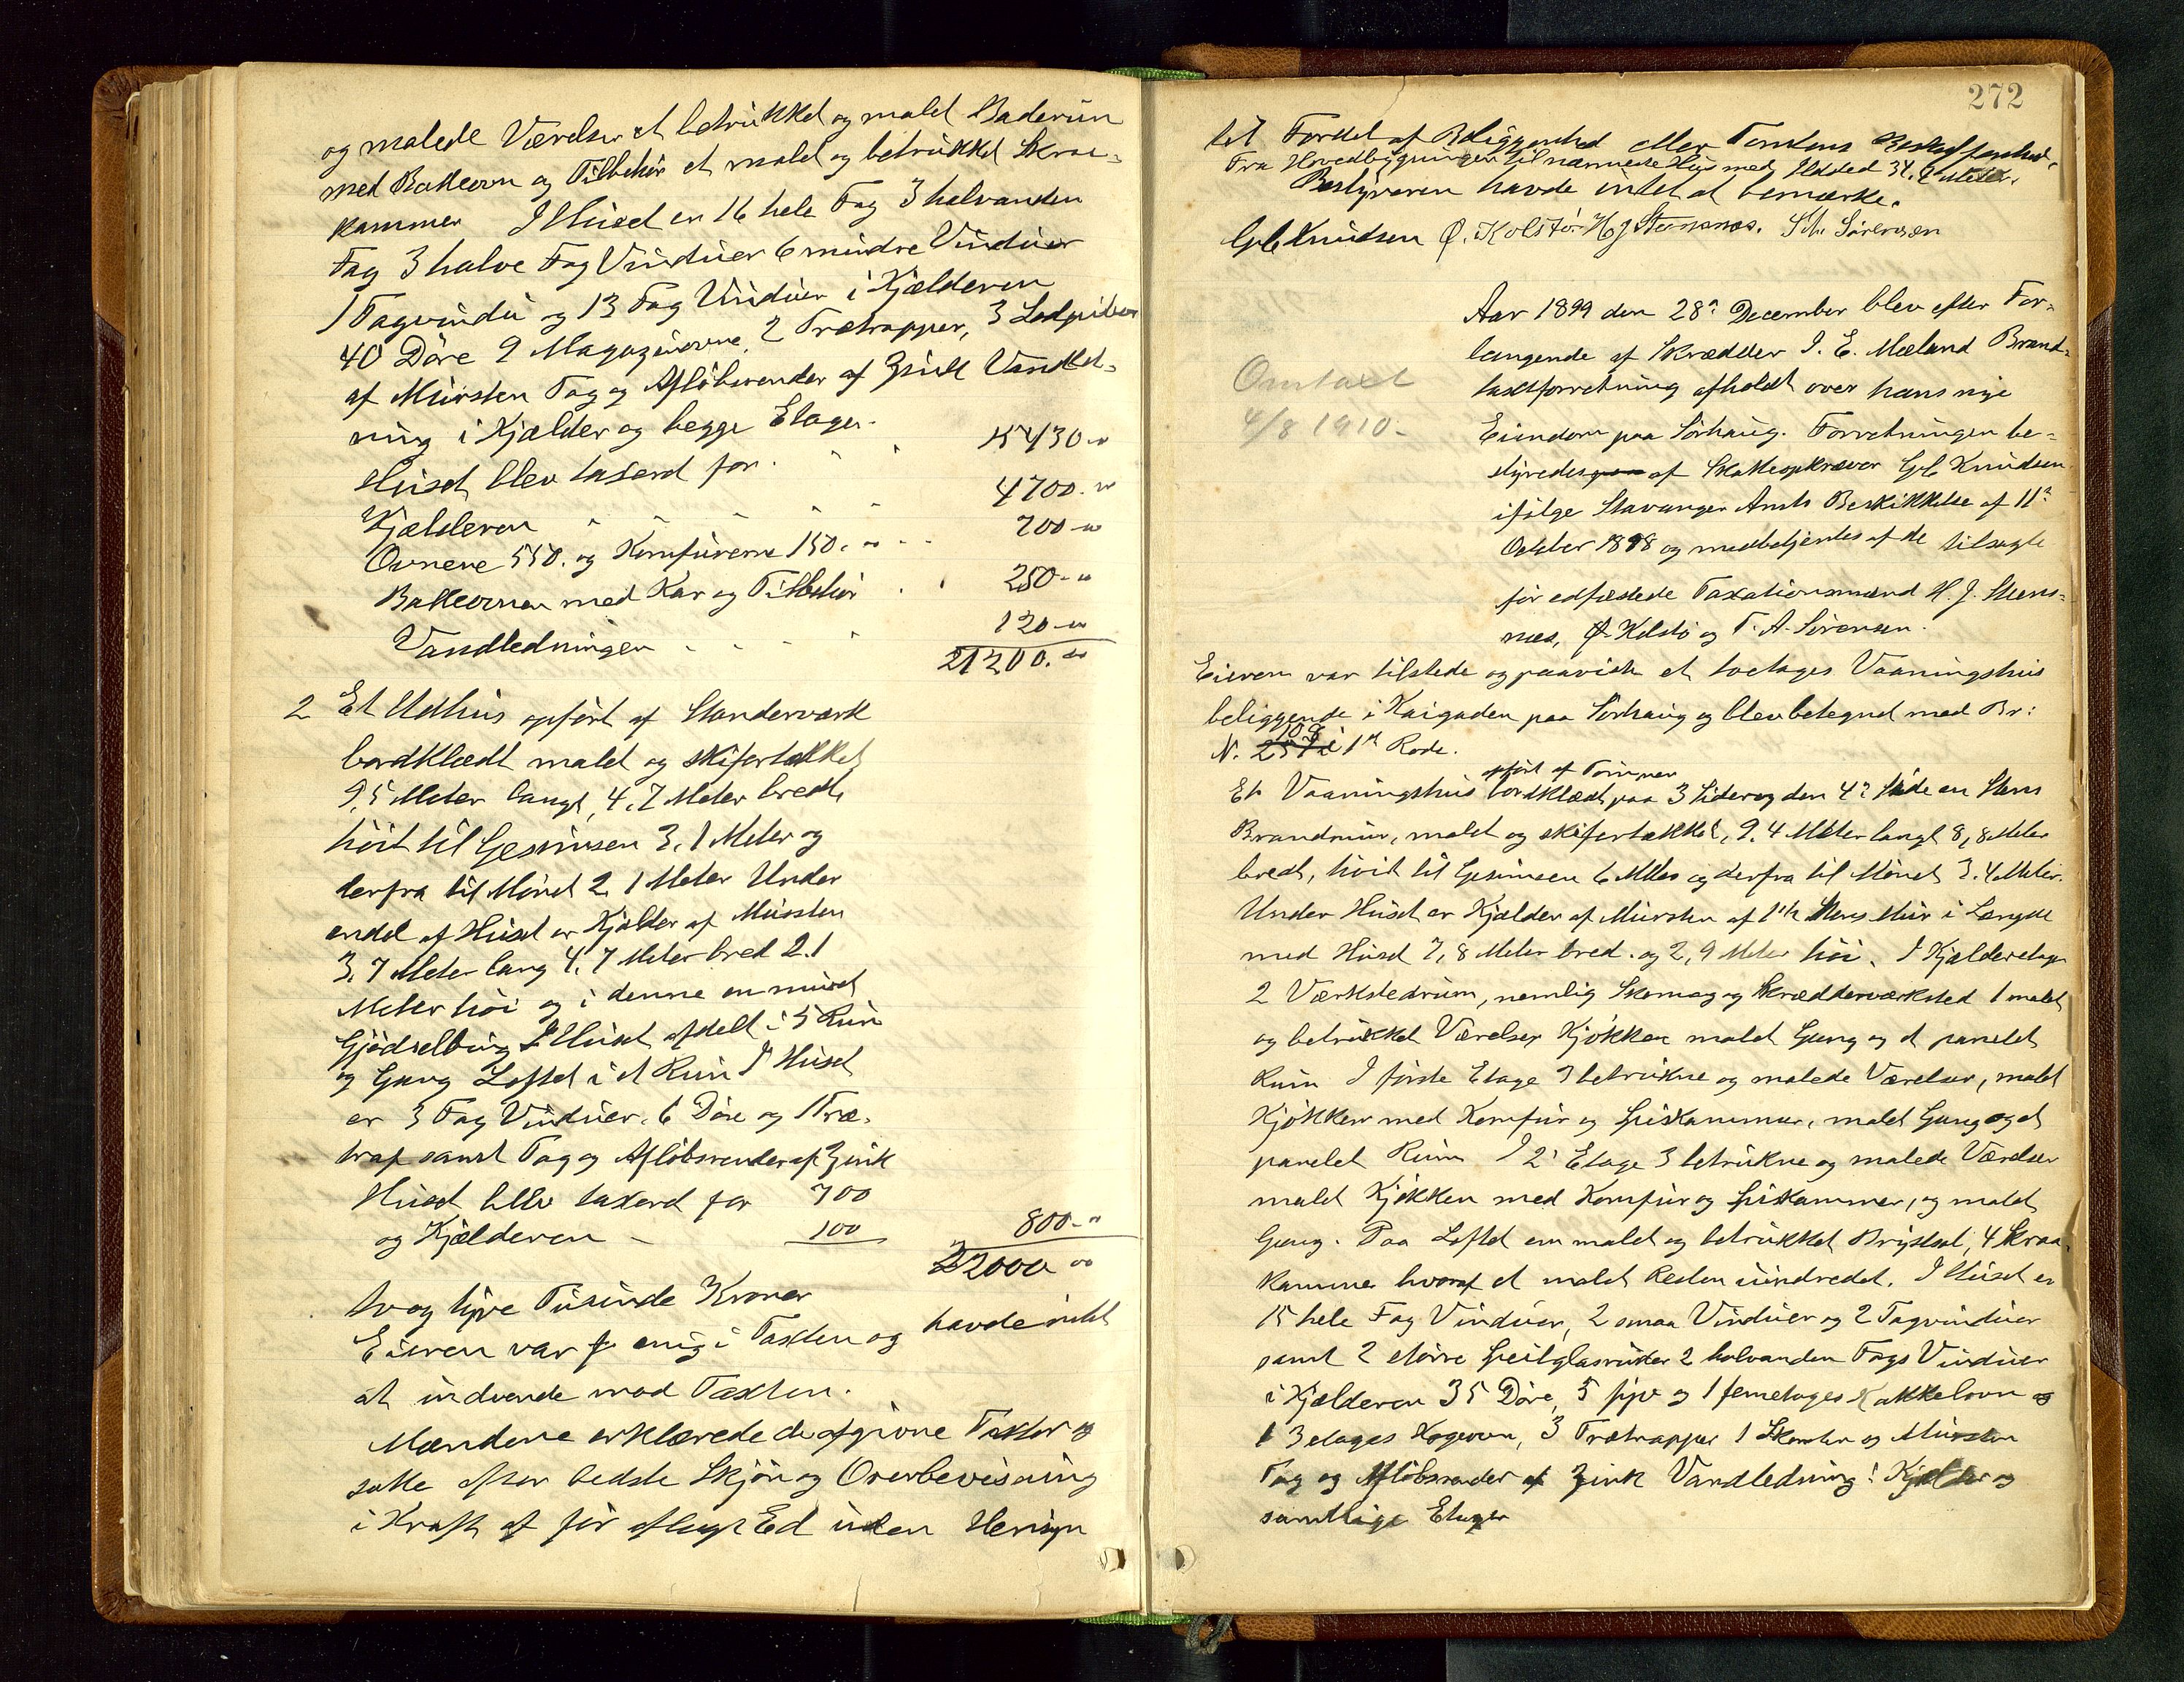 og malede Værelser et betrukket og malet Baderum
med Bakkeovn og Tilbehör et malet og betrukket Skraa=
kammer I Huset er 16 hele Fag 3 halvanden
Fag 3 halve Fag Vinduer 6 mindre Vinduer
1 Tagvindu og 13 Fag Vinduer i Kjælderen
40 Döre 9 Magazinovne, 2 Trætrapper, 3 Lodpiber
af Mursten Tag og Aflöbsrender af Zink Vandled=
ning i Kjælder og begge Etager.
Huset blev taxerd for . 15430.00
Kjælderen 4700.00
Ovnene 550. og Komfurerne 150.00 700.00
Bakkeovnen med Kar og Tilbehör 250.00
Vandledningen 120.00
21200.00
2 Et Udhus opfört af Standerværk
bordklædt malet og skifertækket
9,5 Meter langt, 4,7 Meter bredt,
höit til Gesimsen 3,1 Meter og
derfra til Mönet 2,1 Meter Under
endel af Huset er Kjælder af Mursten
3,7 Meter lang 4,7 Meter bred 2.1
Meter höi og i denne en muret
Gjödselbing I Huset afdelt i 5 Rum
og Gang Loftet i et Rum I Huset
er 3 Fag Vinduer, 6 Döre og 1 Træ=
trap samt Tag og Aflöbsrender af Zink
Huset blev taxerd for 700
og Kjælderen - 100 800.00
22000 00
tvog tyve Tusinde Kroner
Eieren var enig i Taxten og havde intet
at indvende mod Taxten.
Mændene erklærede de afgivne Taxter og
satte efter bedste Skjön og Overbevisning
i Kraft af för aflagt Ed uden Hensyn
272
til Fordel af Beliggenhed eller Tomtens Beskaffenhed.
Fra Hovedbygningen til nærmeste Hus med Ildsted 34,2 Meter.
Bestyreren havde intet at bemærke.
Gpb Knudsen Ø. Kolstö H J Stensnæs. Sörensen
Omtaxt
4/8 1910-
Aar 1899 den 28de December blev efter For=
langende af Skrædder I. E. Mæland Brand=
taxtforretning afholdt over hans nye
Eiendom paa Sörhaug. Forretningen be=
styredes af Skatteopkræver Gpb Knudsen
ifölge Stavanger Amts Beskikkelse af 11te
October 1898 og medbetjentes af de tilsagte
för edfæstede Taxationsmænd H. J. Stens=
næs, Ø. Kolstö og T. A. Sörensen.
Eieren var tilstede og paaviste et toetages Vaaningshus
beliggende i Kaigaden paa Sörhaug og blev betegnet med Br:
108
N. 257 i 1ste Rode.
opfört af Tömmer
Et Vaaningshus bordklædt paa 3 Sider og den 4de Side en Stens
Brandmur, malet og skifertækket, 9,4 Meter langt 8,8 Meter
bredt, höit til Gesimsen 6 Meter og derfra til Mönet 3.4 Meter.
Under Huset er Kjælder af Mursten af 1 1/2 Stens Mur i Længde
med Huset 7,8 Meter bred. og 2,9 Meter höi. I Kjælderetagen
2 Værkstedrum, nemlig Skomag og Skrædderværksted 1 malet
og betrukket Værelse, Kjökken malet Gang og et panelet
Rum I förste Etage 3 betrukne og malede Værelser, malet
Kjökken med Komfur og Spiskammer, malet Gang og et
panelet Rum I 2' Etage 3 betrukne og malede Værelser
malet Kjökken med Komfur og Spiskammer, og malet
Gang. Paa Loftet en malet og betrukket Brystsal, 4 Skraa
kammer hvoraf et malet Resten uindredet. I Huset er
15 hele Fag Vinduer, 2 smaa Vinduer og 2 Tagvinduer
samt 2 större Speilglasruder 2 halvanden Fags Vinduer
i Kjælderen 35 Döre, 5 fyr og 1 femetages Kakkelovn og
1 3 etages Kogeovn, 3 Trætrapper 1 Skorsten og Mursten
Tag og Aflöbsrender af Zink Vandledning i Kjælder og
samtlige Etager